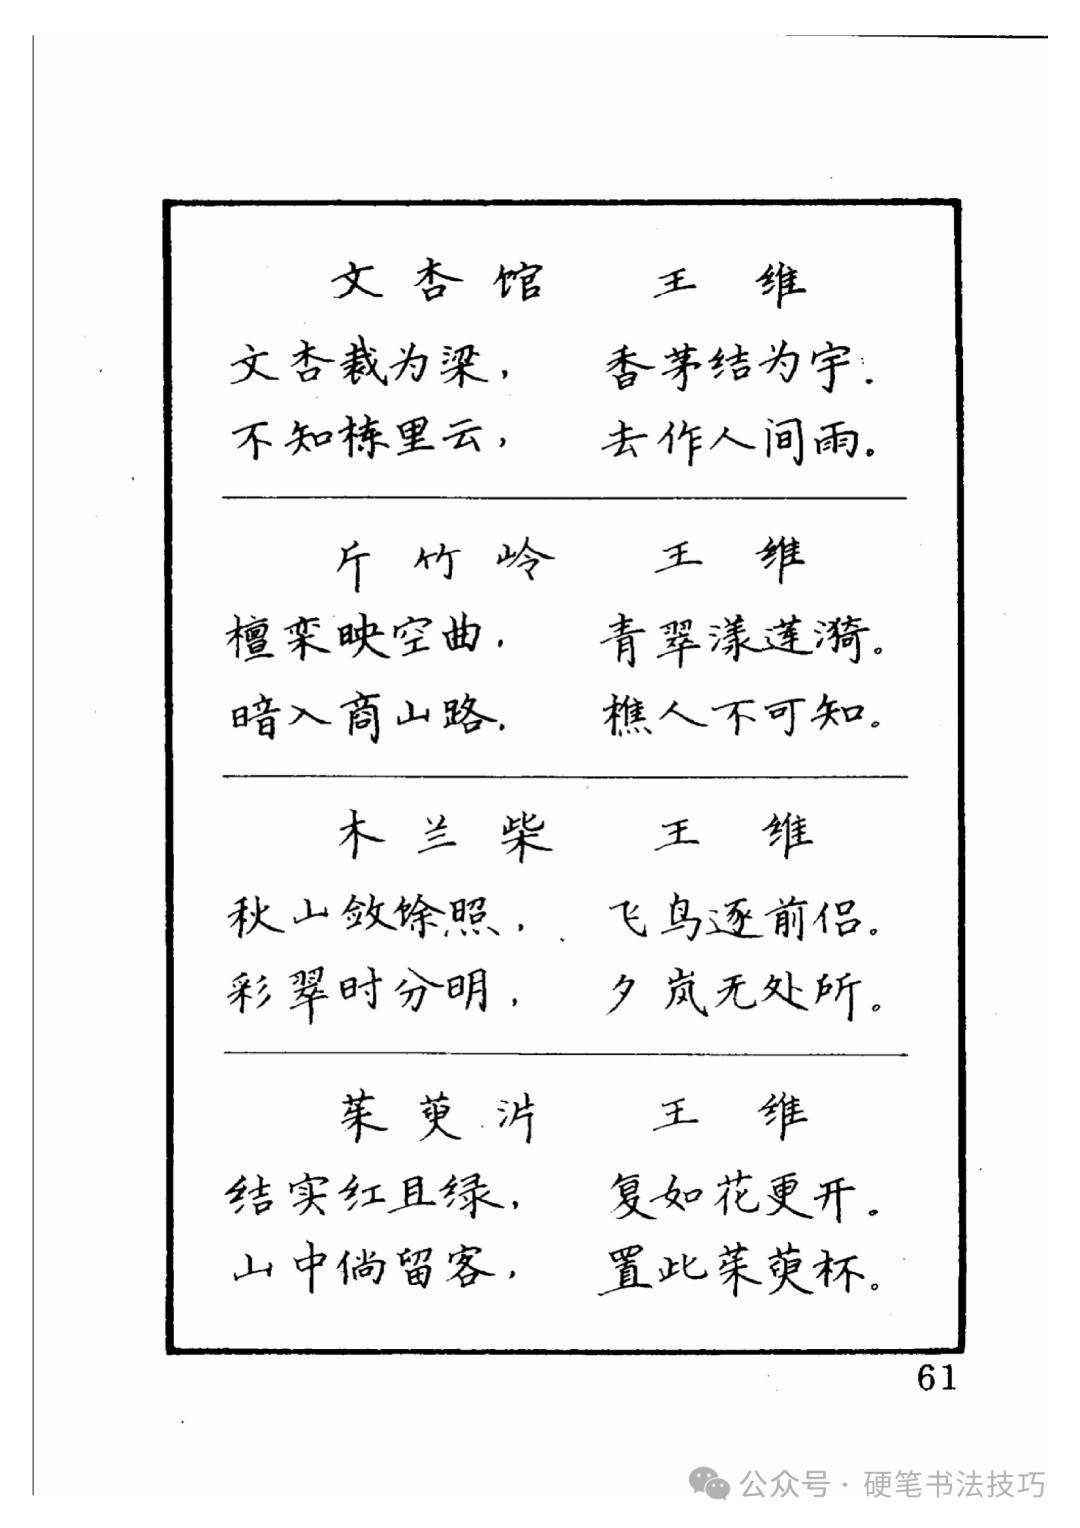 文杏馆 王维
文杏裁为梁， 香茅结为宇．
不知栋里云， 去作人间雨。
斤竹岭 王维
檀栾映空曲， 青翠漾莲漪。
暗入商山路， 樵人不可知。
木兰柴 王维
秋山敛馀照， 飞鸟逐前侣。
彩翠时分明， 夕岚无处所。
茱萸沜 王维
结实红且绿， 复如花更开。
山中倘留客， 置此茱萸杯。
61
公众号·硬笔书法技巧